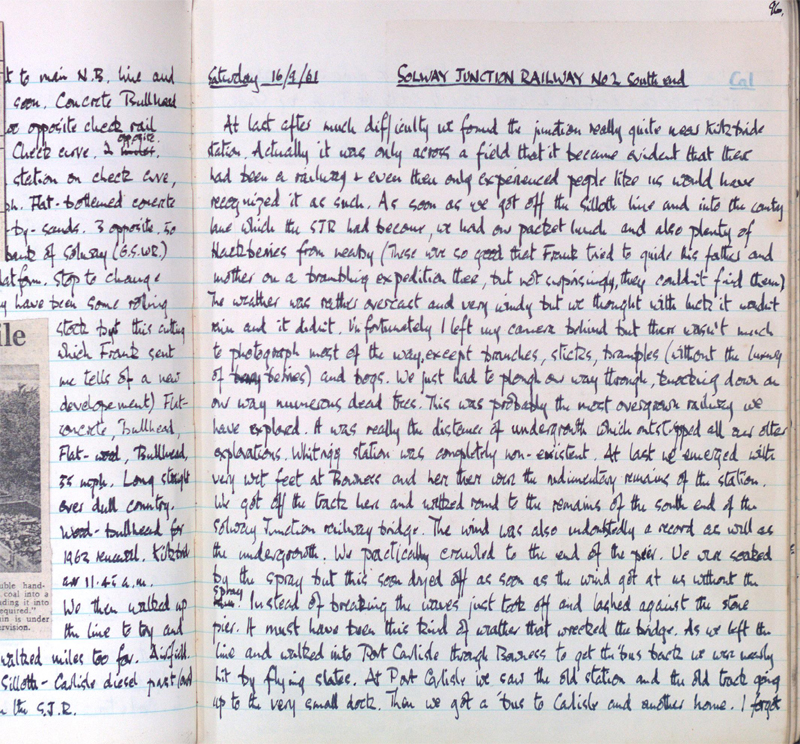 t to main N.B. line and
soon. Concrete Bullhead
opposite check rail
Check curve. 2 opposite.
station on check curve,
Flat-bottomed concrete
-by-sands. 3 opposite. 50
bank of Solway (G.S.W.R.)
latform. Stop to change
y have been some rolling
stock but this cutting
which Frank sent
me tells of a new
developement) Flat-
concrete, Bullhead,
Flat-wood, Bullhead,
35 mph. Long straight
over dull country.
Wood-bullhead for
1963 renewal. Kirkbride
at 11.45 a.m.
We then walked up
the line to try and
walked miles too far. Airfield.
Silloth-Carlisle diesel past
n the S.J.R.
ile
uble hand-
coal into a
ding it into
equired."
in is under
rvision.
96.
Saturday 16/9/61 SOLWAY JUNCTION RAILWAY No 2 South end Cal
At last after much difficulty we found the junction really quite near Kirkbride
station. Actually it was only across a field that it became evident that there
had been a railway + even then only experienced people like us would have
recognized it as such. As soon as we got off the Silloth line and into the country
lane which the SJR had become, we had our packet lunch and also plenty of
blackberries from nearby (These were so good that Frank tried to guide his father and
mother on a brambling expedition there, but not surprisingly, they couldn't find them)
The weather was rather overcast and very windy but we thought with luck it wouldn't
rain and it didn't. Unfortunately I left my camera behind but there wasn't much
to photograph most of the way, except branches, sticks, brambles (without the luxury
of berries) and bogs. We just had to plough our way through, knocking down on
our way numerous dead trees. This was probably the most overgrown railway we
have explored. It was really the distance of undergrowth which outstripped all our other
explorations. Whitrigg station was completely non-existent. At last we emerged with
very wet feet at Bowness and here there were the rudimentary remains of the station.
We got off the track here and walked round to the remains of the south end of the
Solway Junction railway bridge. The wind was also undoubtedly a record as well as
the undergrowth. We practically crawled to the end of the pier. We were soaked
by the spray but this soon dryed off as soon as the wind got at us without the
spray. Instead of breaking the waves just took off and lashed against the stone
pier. It must have been this kind of weather that wrecked the bridge. As we left the
line and walked into Port Carlisle through Bowness to get the 'bus back we were nearly
hit by flying slates. At Port Carlisle we saw the old station and the old track going
up to the very small dock. Then we got a 'bus to Carlisle and another home. I forgot